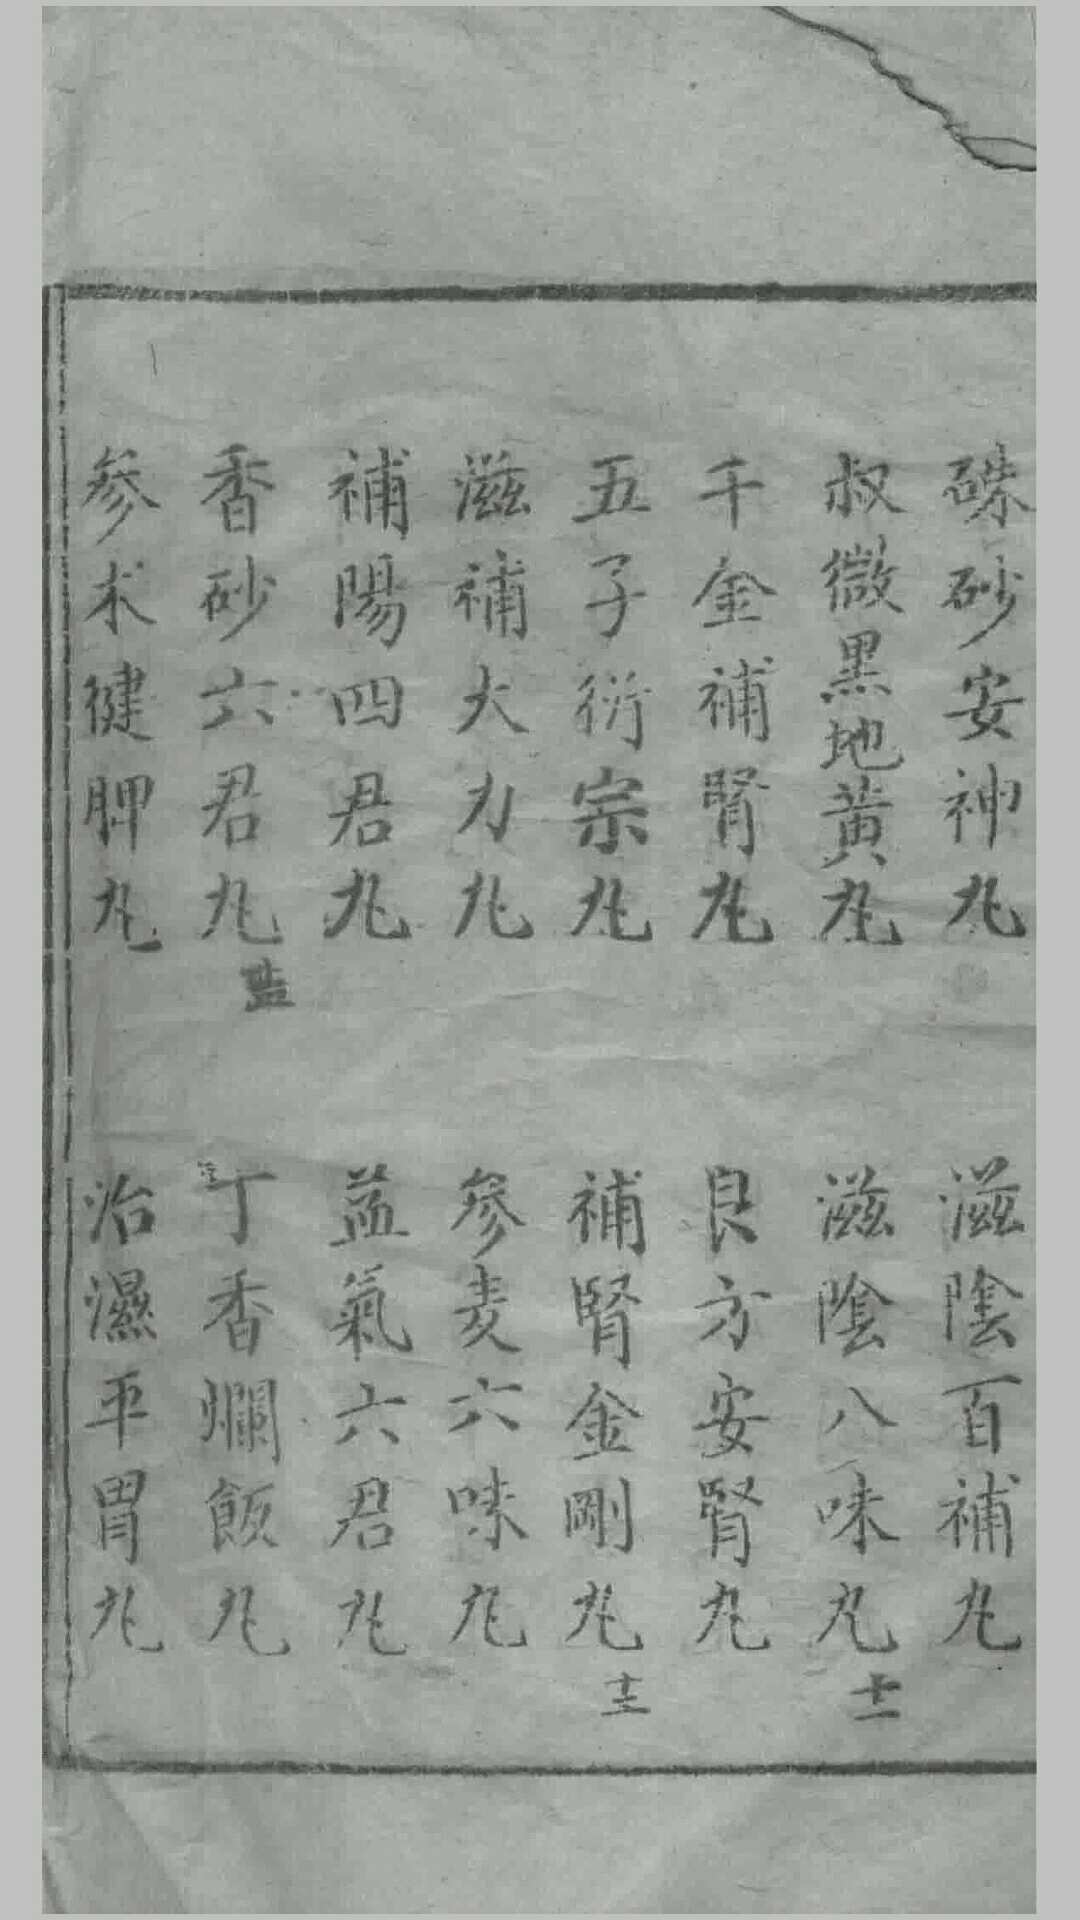 硃砂安神丸
滋陰百補丸
叔微黑地黄丸
滋陰八味丸
十二
千金補腎丸
良方安腎丸
五子衍宗丸
補腎金剛丸
十三
滋補大力丸
參麦六味丸
補陽四君丸
益氣六君丸
香砂六君丸
丁香爛飯丸
參朮健脾丸
治濕平胃丸